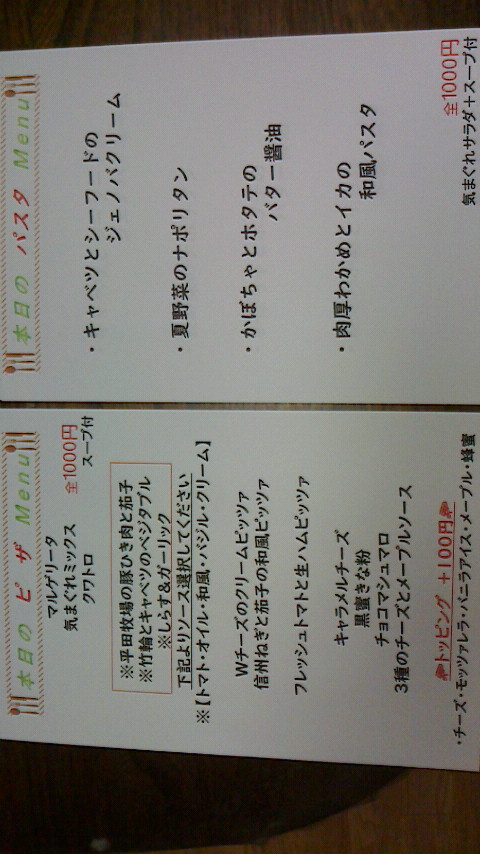 本日の パスタ Menu
・キャベツとシーフードの
ジェノバクリーム
・夏野菜のナポリタン
・かぼちゃとホタテの
バター醤油
・肉厚わかめとイカの
和風パスタ
全1000円
気まぐれサラダ＋スープ付
本日の ピ ザ Menu
全1000円
スープ付
マルゲリータ
気まぐれミックス
クワトロ
※平田牧場の豚ひき肉と茄子
※竹輪とキャベツのベジタブル
※しらす&ガーリック
下記よりソース選択してください
※【トマト・オイル・和風・バジル・クリーム】
Wチーズのクリームピッツァ
信州ねぎと茄子の和風ピッツァ
フレッシュトマトと生ハムピッツァ
キャラメルチーズ
黒蜜きな粉
チョコマシュマロ
3種のチーズとメープルソース
トッピング +100円
・チーズ・モッツァレラ・バニラアイス・メープル・蜂蜜